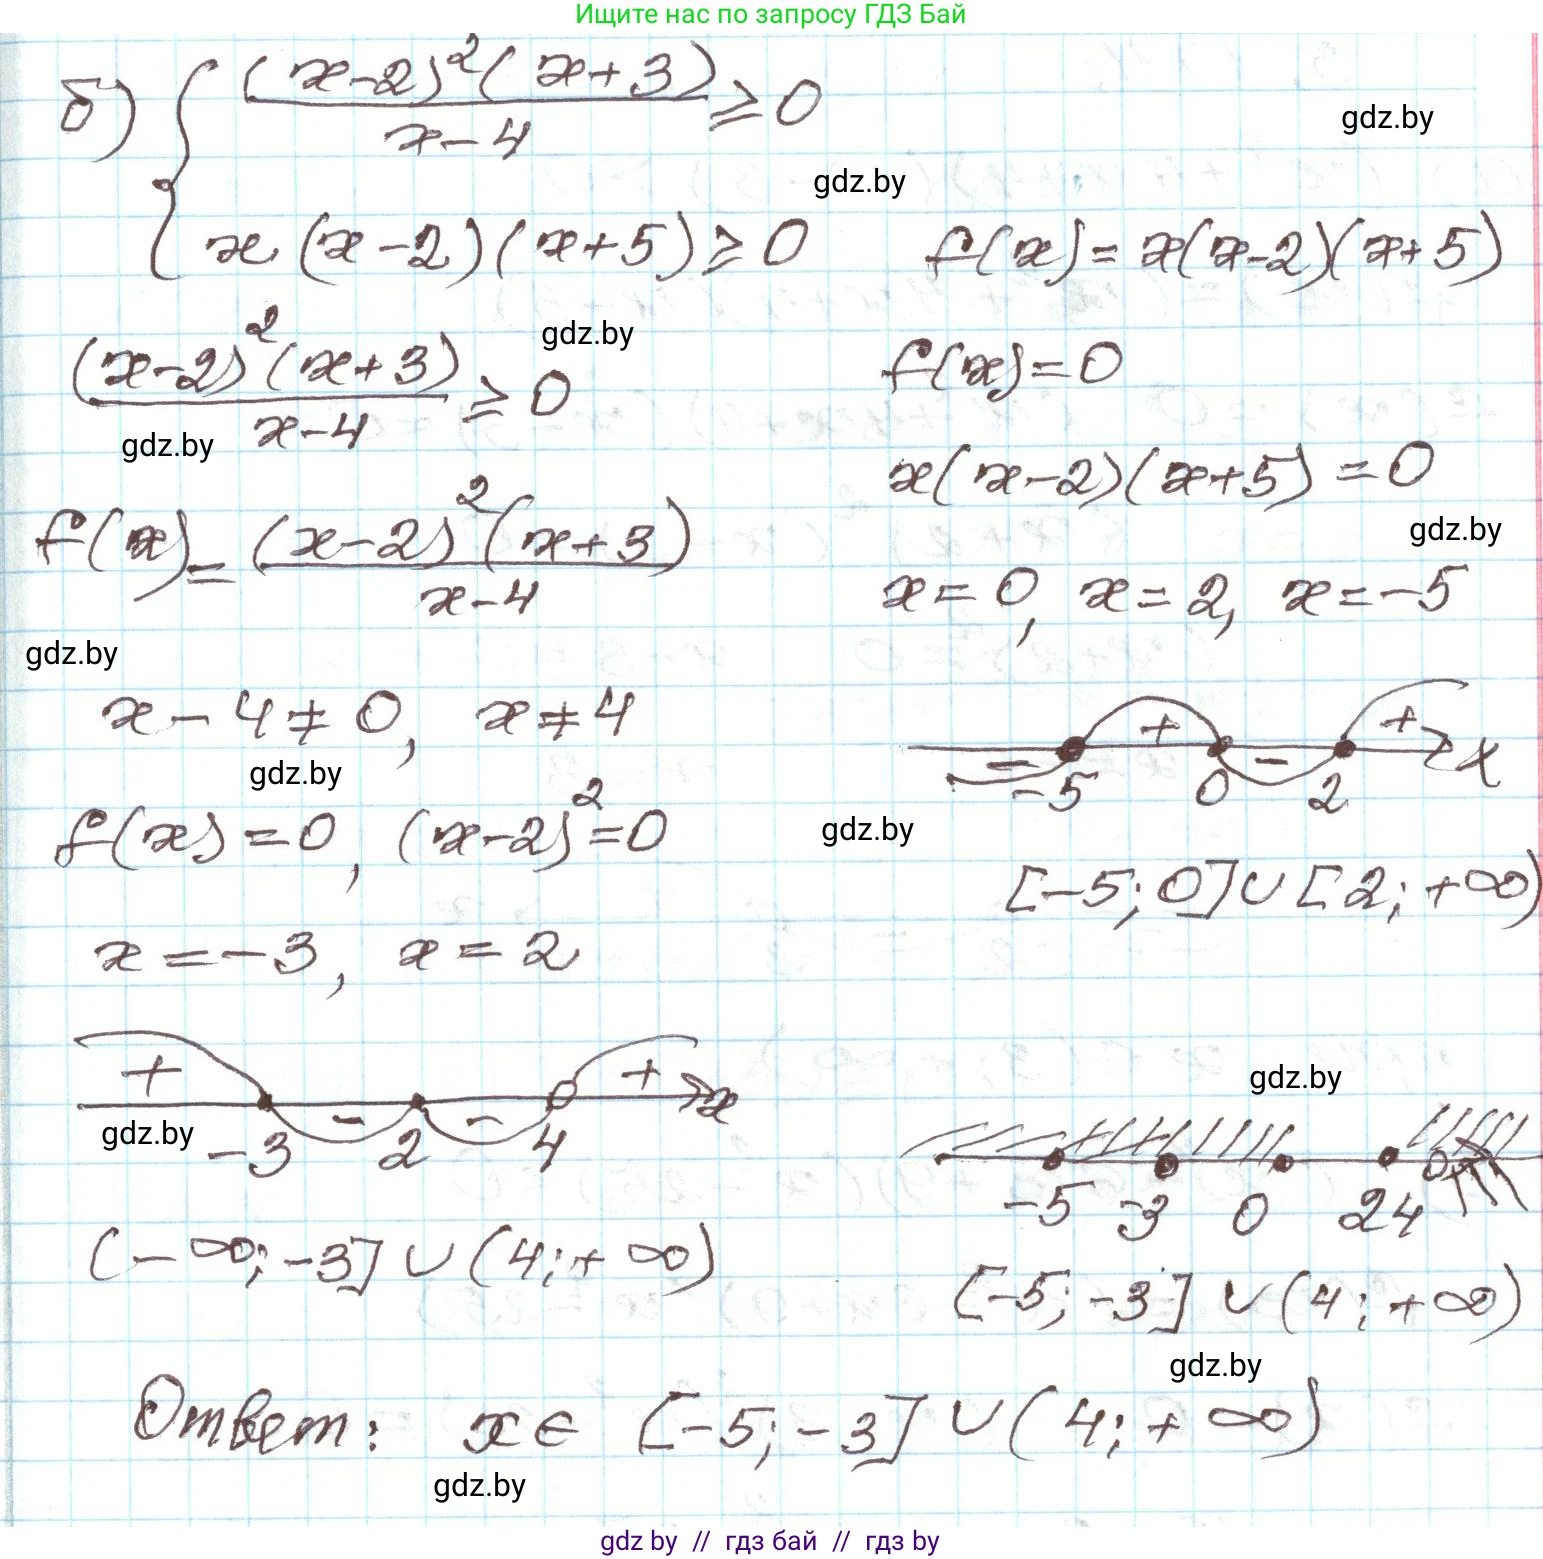 Ищите нас по запросу ГДЗ Бай
б) { (x-2)²(x+3) / x-4 ≥ 0
x(x-2)(x+5) ≥ 0
gdz.by
gdz.by
(x-2)²(x+3) / x-4 ≥ 0
gdz.by
gdz.by
f(x) = (x-2)²(x+3) / x-4
gdz.by
x-4≠0, x≠4
gdz.by
f(x)=0, (x-2)²=0
x=-3, x=2
+ - - + x
-3 2 4
gdz.by
(-∞;-3]∪(4;+∞)
f(x)=x(x-2)(x+5)
f(x)=0
x(x-2)(x+5)=0
gdz.by
x=0, x=2, x=-5
- + - + x
-5 0 2
gdz.by
[-5;0]∪[2;+∞)
gdz.by
-5 -3 0 2 4
[-5;-3]∪(4;+∞)
gdz.by
Ответ: x∈ [-5;-3]∪(4;+∞)
gdz.by
gdz by // гдз бай // gdz by